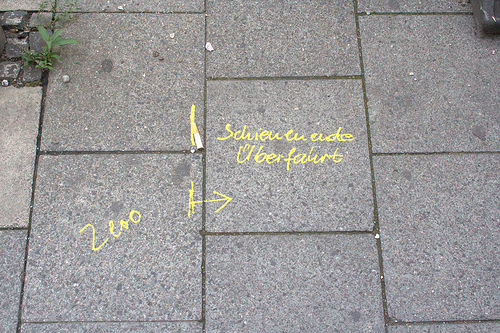 Schienenende
Überfahrt
Zero